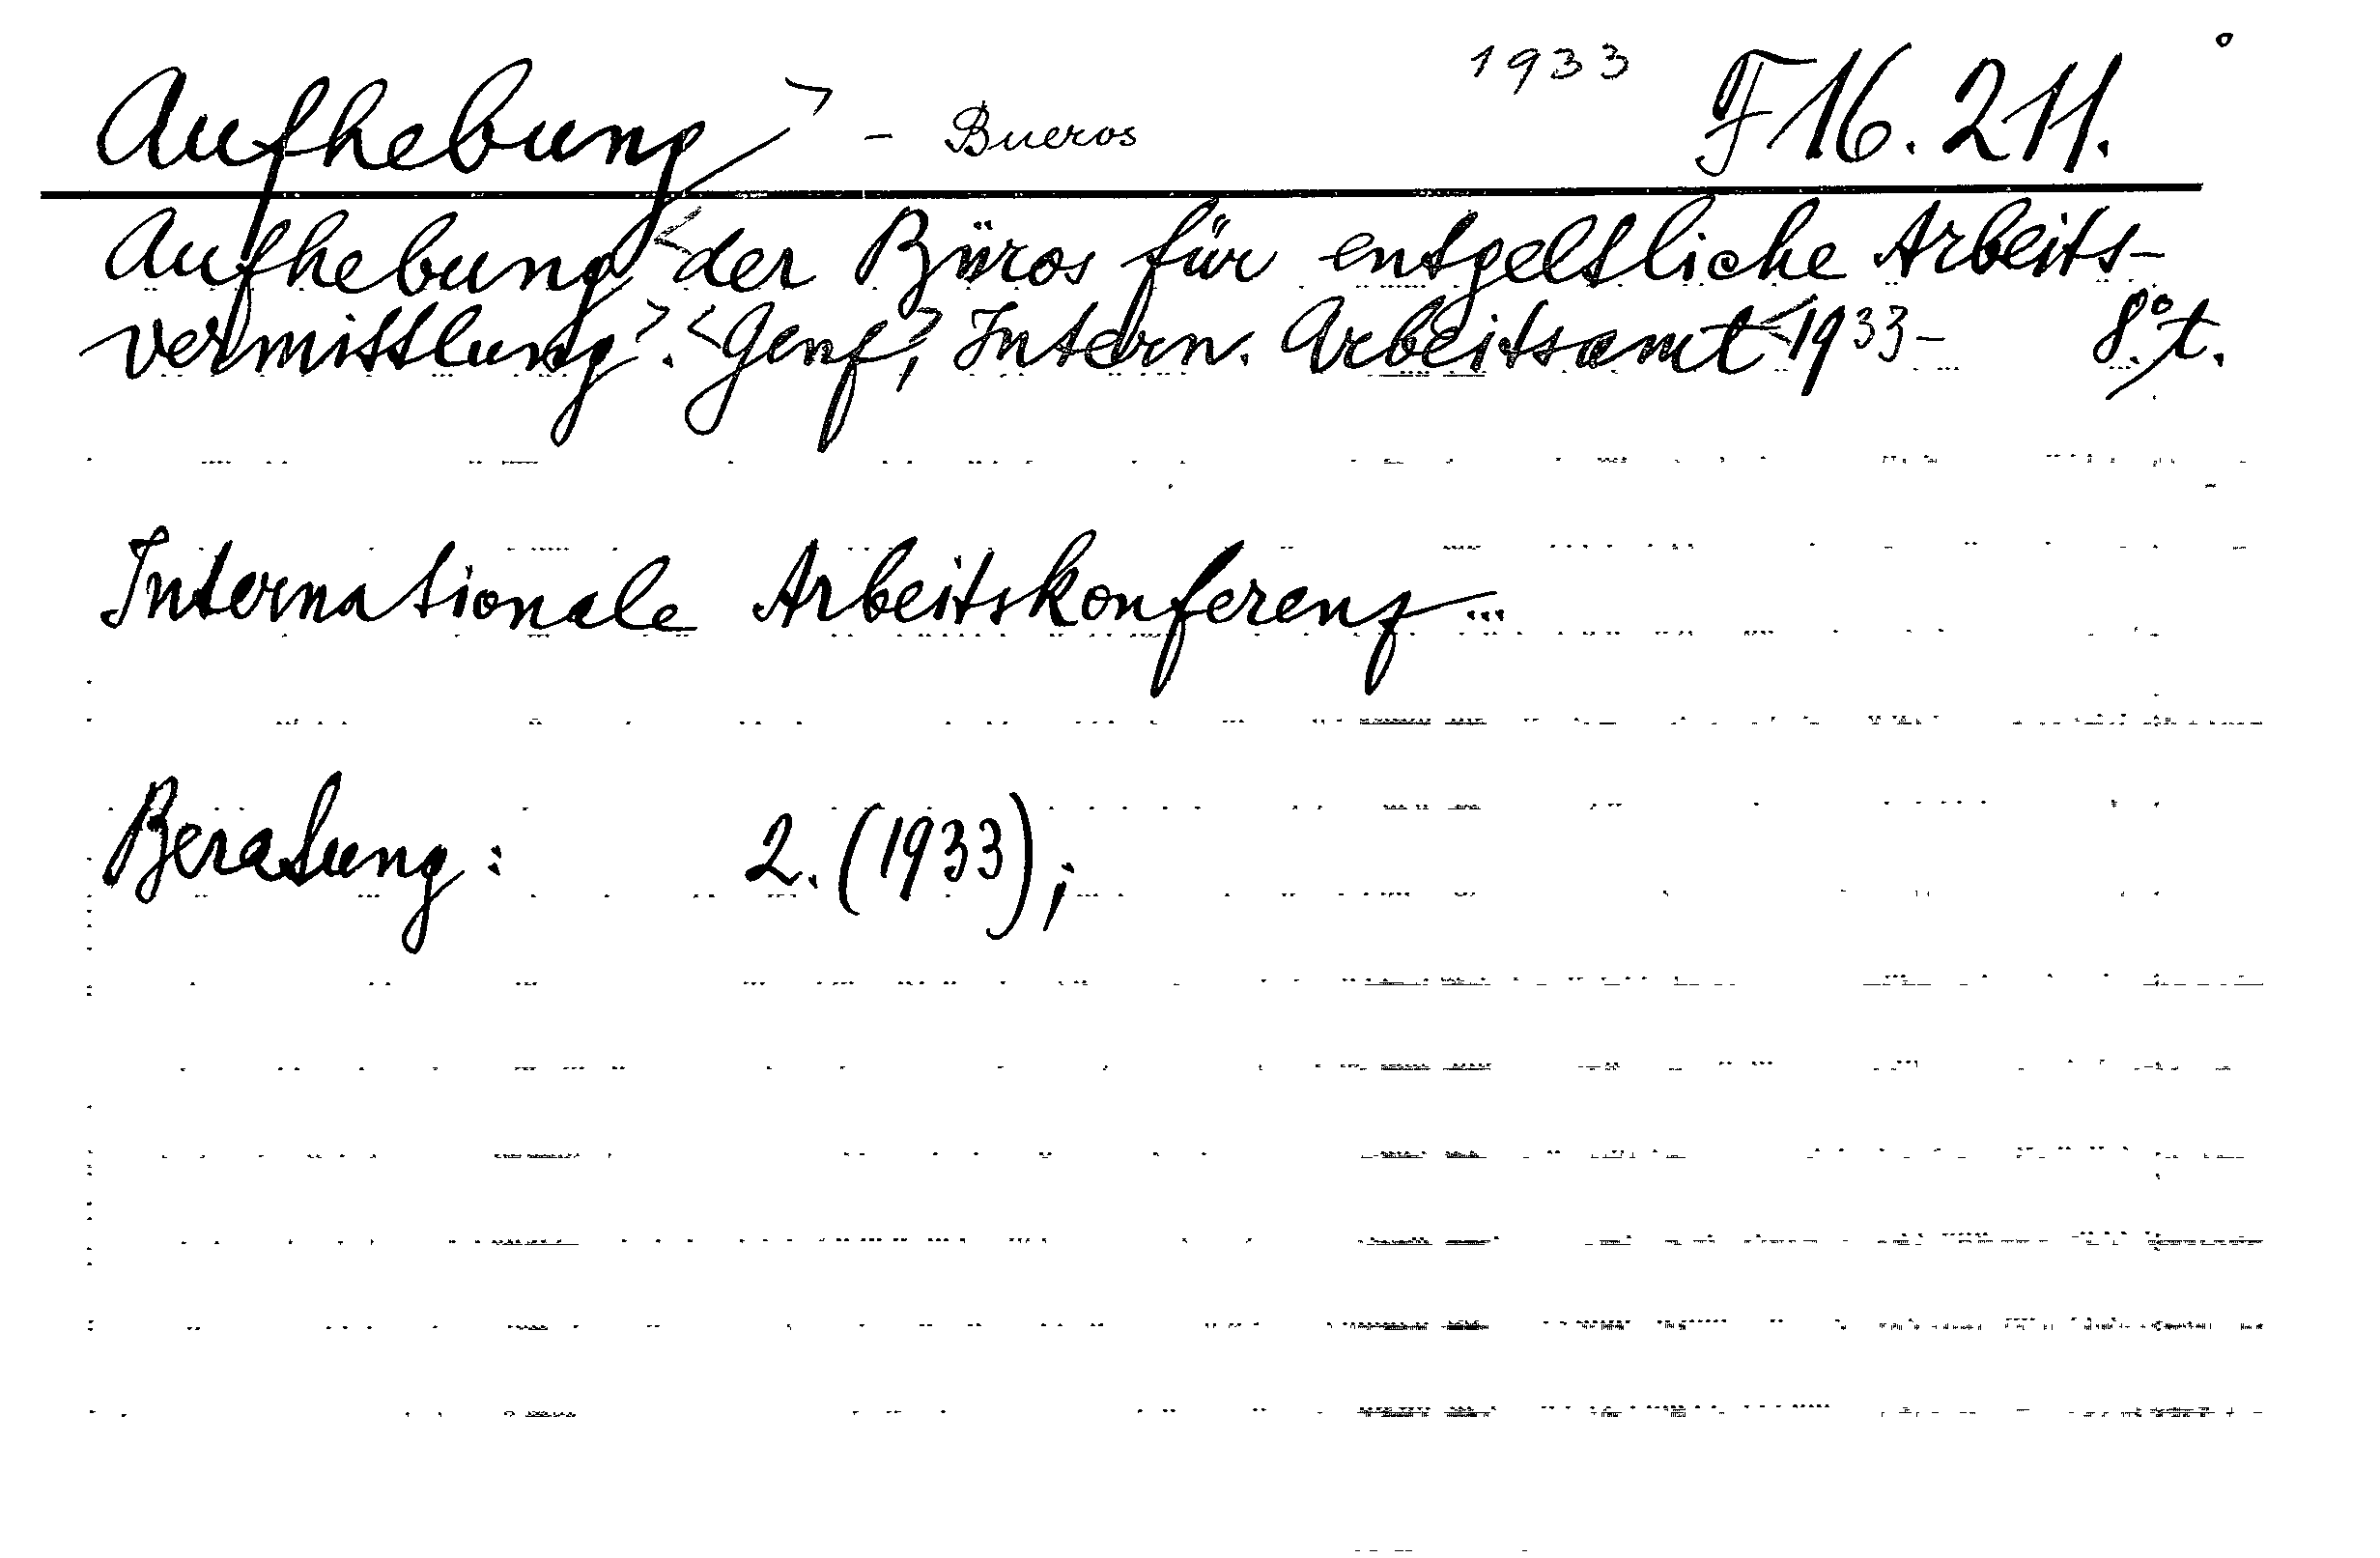 Aufhebung> - Bueros 1933 F 16.211.
Aufhebung< der Büros für entgeltliche Arbeits-
vermittlung>. <Genf>, Intern. Arbeitsamt< 1933- 8° t.
Internationale Arbeitskonferenz...
Beratung: 2. (1933);